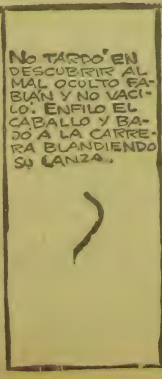 NO TARDÓ EN
DESCUBRIR AL
MAL OCULTO FA-
BIAN Y NO VACI-
LO. ENFILO EL
CABALLO Y BA-
JÓ A LA CARRE-
RA BLANDIENDO
SU LANZA.